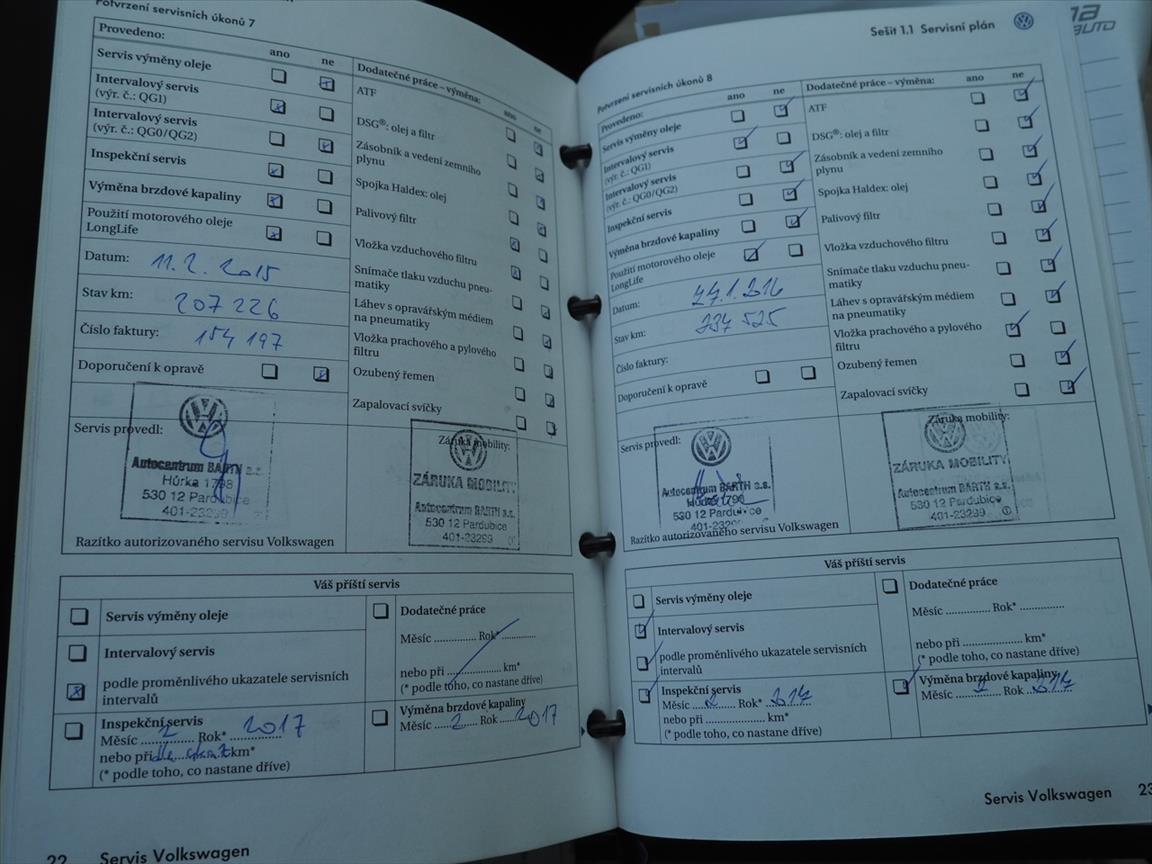 Potvrzení servisních úkonů 7
Provedeno:
ano
ne
Servis výměny oleje
Intervalový servis
(výr. č.: QG1)
Intervalový servis
(výr. č.: QG0/QG2)
Inspekční servis
Výměna brzdové kapaliny
Použití motorového oleje
LongLife
Datum: 11. 2. 2015
Stav km: 207 226
Číslo faktury: 154 197
Doporučení k opravě
Dodatečné práce – výměna:
ano
ne
ATF
DSG®: olej a filtr
Zásobník a vedení zemního
plynu
Spojka Haldex: olej
Palivový filtr
Vložka vzduchového filtru
Snímače tlaku vzduchu pneu-
matiky
Láhev s opravářským médiem
na pneumatiky
Vložka prachového a pylového
filtru
Ozubený řemen
Zapalovací svíčky
Servis provedl:
Autocentrum BARTH a.s.
Hůrka 1798
530 12 Pardubice
401-23299
Razítko autorizovaného servisu Volkswagen
Záruka mobility:
ZÁRUKA MOBILITY
Autocentrum BARTH a.s.
530 12 Pardubice
401-23299
Váš příští servis
Servis výměny oleje
Intervalový servis
podle proměnlivého ukazatele servisních
intervalů
Inspekční servis
Měsíc 2 Rok* 2017
nebo při km*
(* podle toho, co nastane dříve)
Dodatečné práce
Měsíc ............... Rok* ..............
nebo při ........................ km*
(* podle toho, co nastane dříve)
Výměna brzdové kapaliny
Měsíc 2 Rok 2017
22 Servis Volkswagen
Sešit 1.1 Servisní plán
Potvrzení servisních úkonů 8
Provedeno:
ano
ne
Servis výměny oleje
Intervalový servis
(výr. č.: QG1)
Intervalový servis
(výr. č.: QG0/QG2)
Inspekční servis
Výměna brzdové kapaliny
Použití motorového oleje
LongLife
Datum:
Stav km: 234 525
Číslo faktury:
Doporučení k opravě
Dodatečné práce – výměna:
ano
ne
ATF
DSG®: olej a filtr
Zásobník a vedení zemního
plynu
Spojka Haldex: olej
Palivový filtr
Vložka vzduchového filtru
Snímače tlaku vzduchu pneu-
matiky
Láhev s opravářským médiem
na pneumatiky
Vložka prachového a pylového
filtru
Ozubený řemen
Zapalovací svíčky
Servis provedl:
Autocentrum BARTH a.s.
Hůrka 1798
530 12 Pardubice
Razítko autorizovaného servisu Volkswagen
Záruka mobility:
ZÁRUKA MOBILITY
Autocentrum BARTH a.s.
530 12 Pardubice
401-23299
Váš příští servis
Servis výměny oleje
Intervalový servis
podle proměnlivého ukazatele servisních
intervalů
Inspekční servis
Měsíc 2 Rok*
nebo při ..................... km*
(* podle toho, co nastane dříve)
Dodatečné práce
Měsíc ............... Rok* ..............
nebo při ..................... km*
(* podle toho, co nastane dříve)
Výměna brzdové kapaliny
Měsíc 2 Rok
Servis Volkswagen 23
AUTO